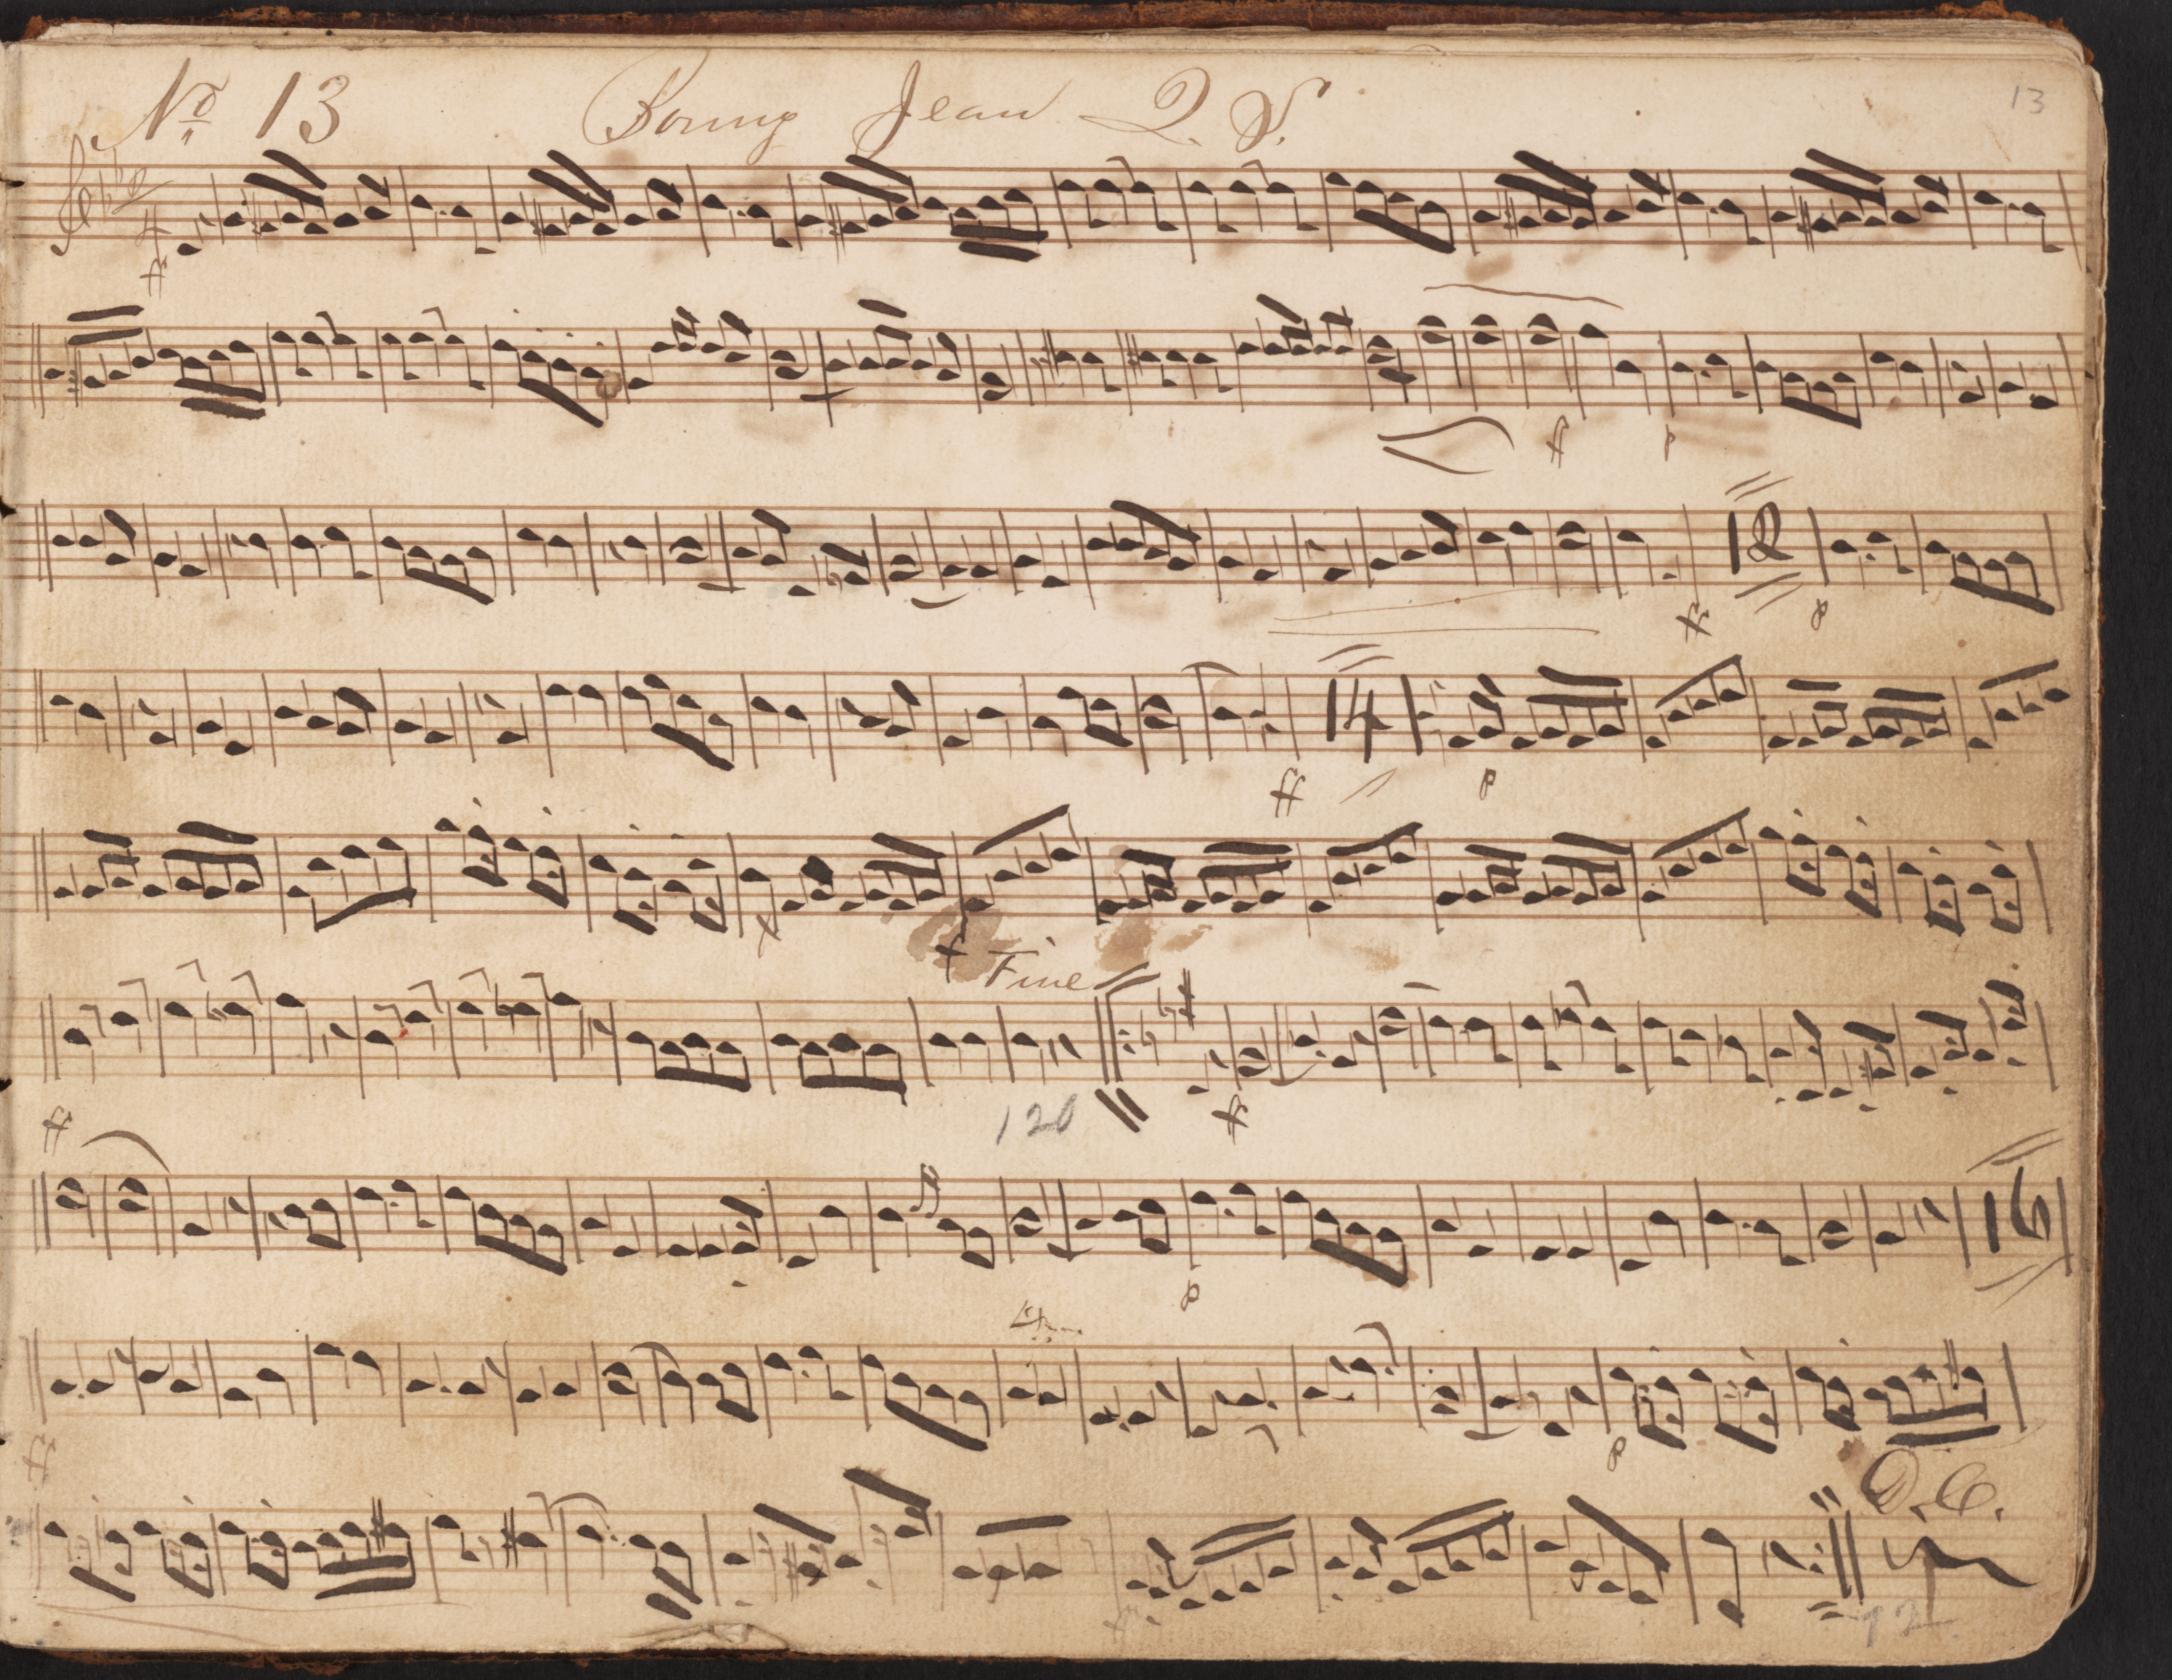 No 13 Bonny Jean Q. S. 13
ff
ff p
12
ff p
14
ff p
Fine
ff
120
p
16
ff p
D.C.
92